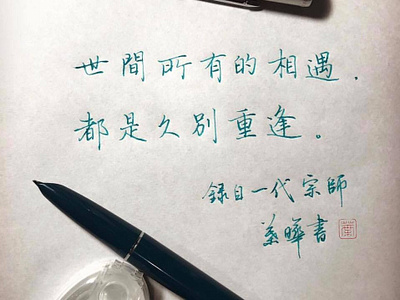 世間所有的相遇.
都是久別重逢。
錄自一代宗師
葉曄書